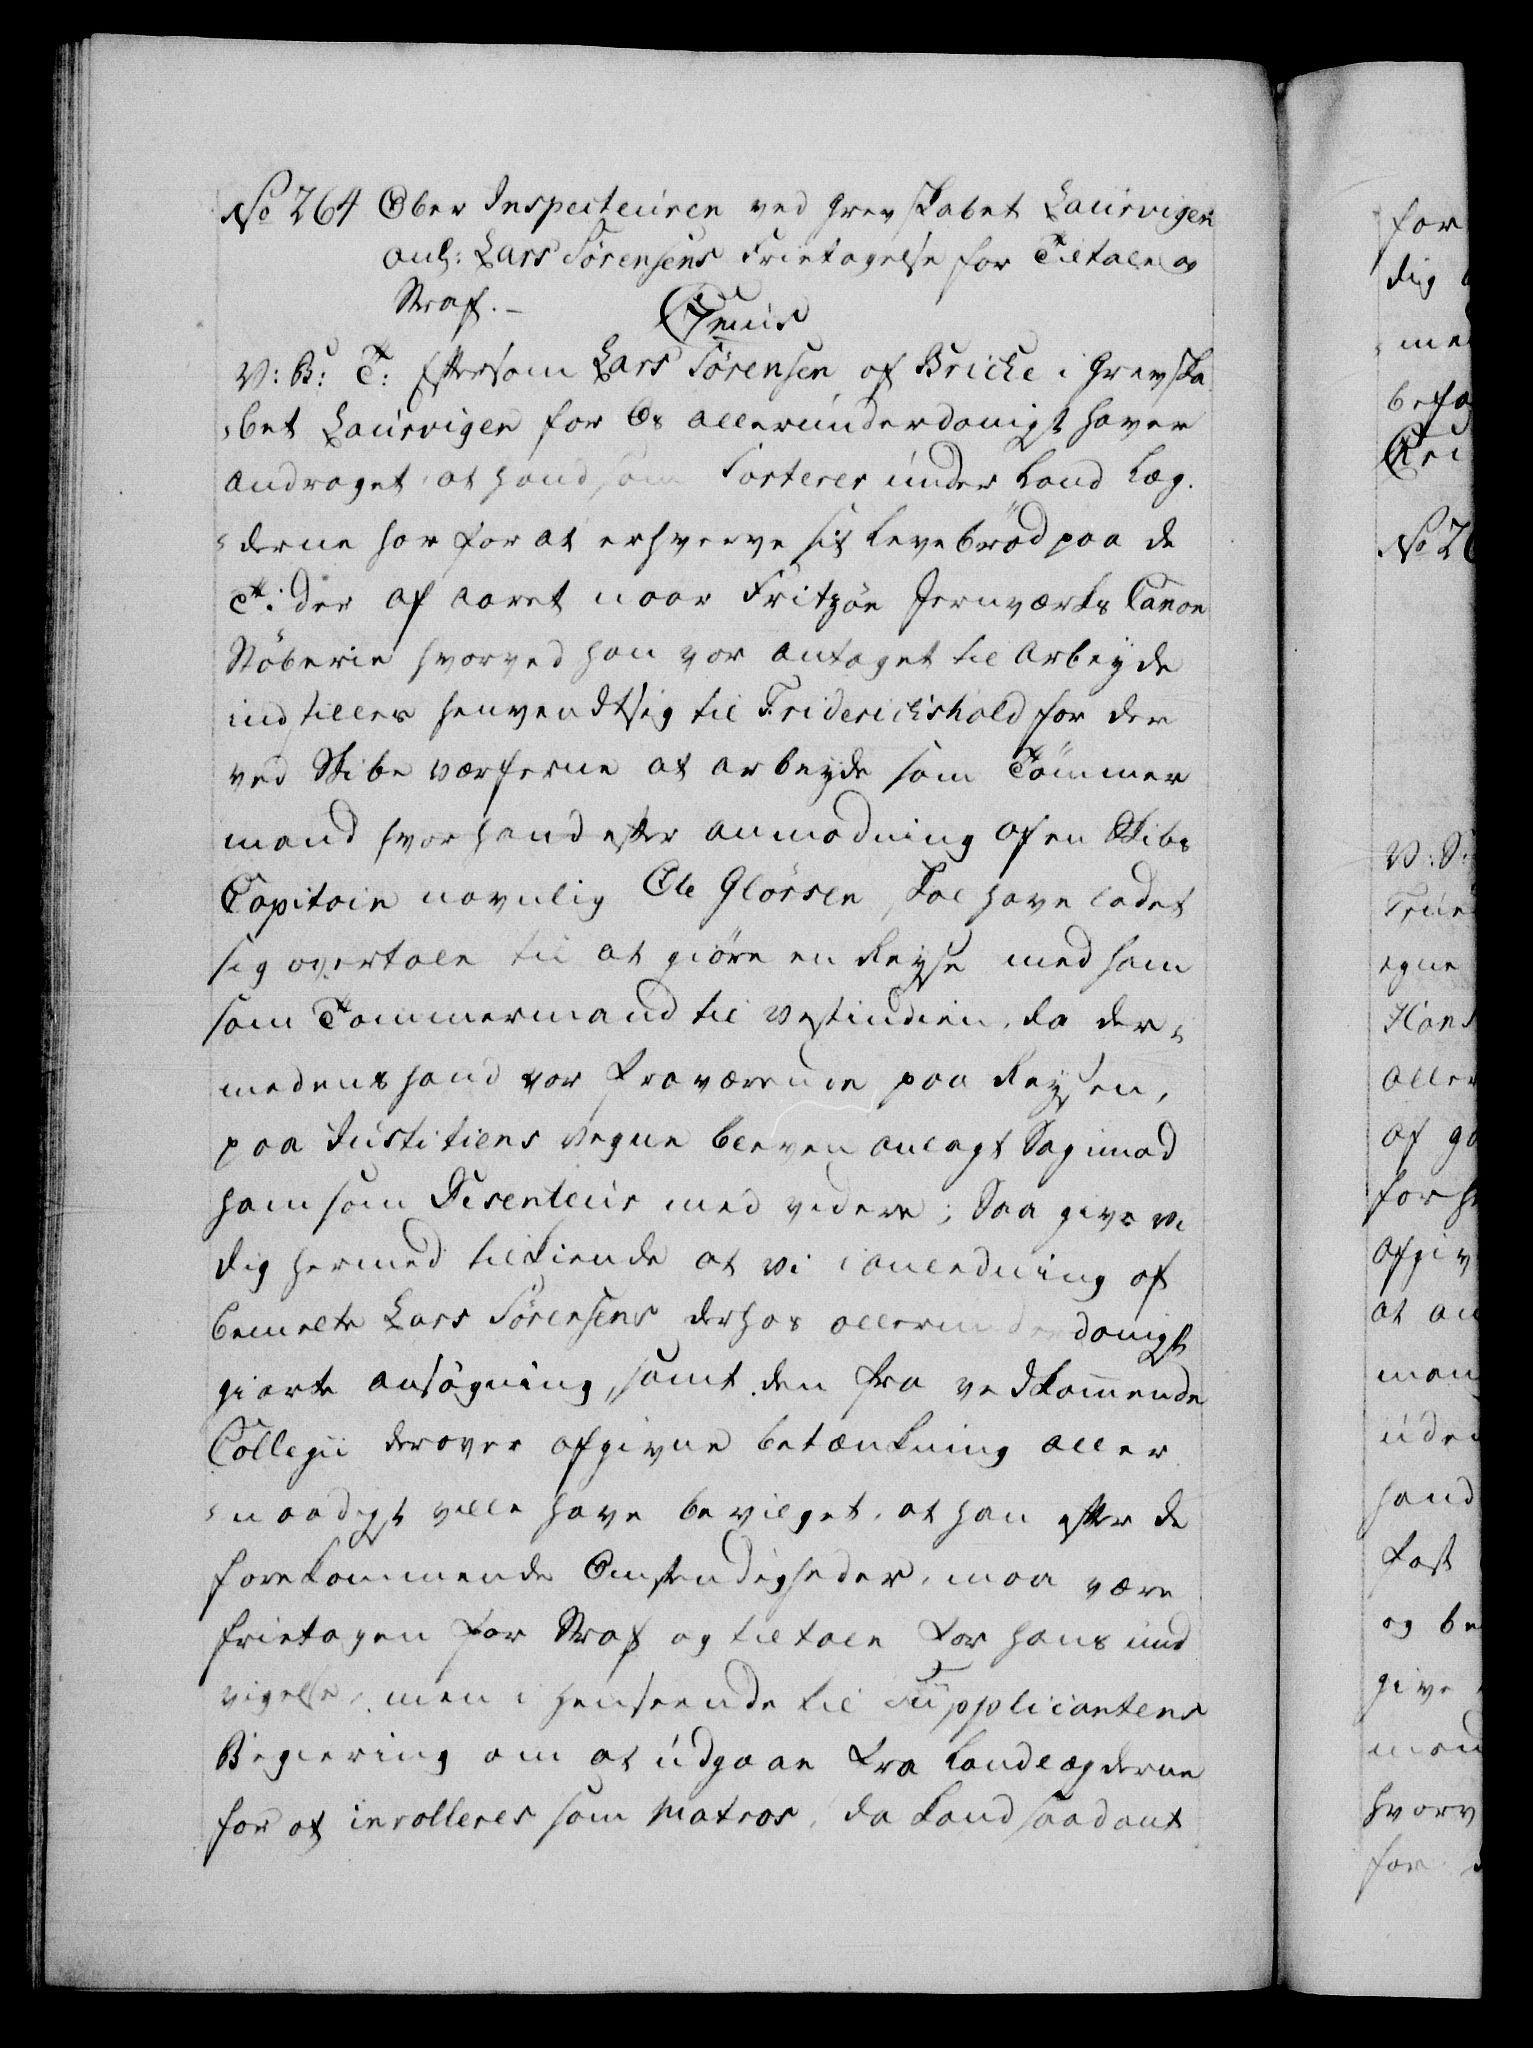 No 264 Ober Inspecteuren ved Grevskabet Laurvigen
anl: Lars Sørensens Frietagelse for Tiltale og
Straf. –
V: B: T: Eftersom Lars Sørensen af Bricke i Grevska
bet Laurvigen for Os allerunderdanigst haver
andraget, at hand som Sorterer under Land Læg¬
derne har for at erhverve sit Levebrød paa de
Tider af Aaret naar Fritzøe Jernværks Canon
Støberie hvorved han var antaget til Arbeyde
indstilles henvendt sig til Friderichshald for der
ved Skibs værfterne at arbeyde som Tømmer
mand hvor hand efter anmodning af en Skibs
Capitain navnlig Ole Glørsen, skal have ladet
sig overtale til at giøre en Reyse med ham
som Tømmermand til Vestindien, da der,
medens hand var fraværende paa Reysen,
paa Justitiens vegne bleven anlagt Sag imod
ham som Deserteur med videre; Saa give vi
dig hermed tilkiende at vi i anledning af
bemelte Lars Sørensens derhos allerunderdanigst
giorte ansøgning, samt den fra vedkommende
Collegii derover afgivne betænkning aller
naadigst ville have bevilget, at han efter de
forekommende Omstendigheder, maa være
frietagen for Straf og tiltale for hans und
vigelse, men i henseende til Supplicantens
Begiering om at udgaae fra Landlægderne
for at inrolleres som Matros, da kand saadant
for
dig
befa
No 26
egne
Hans
aller
af
for
afgiv
at
man
uden
hand
og be
give
hvorv
for